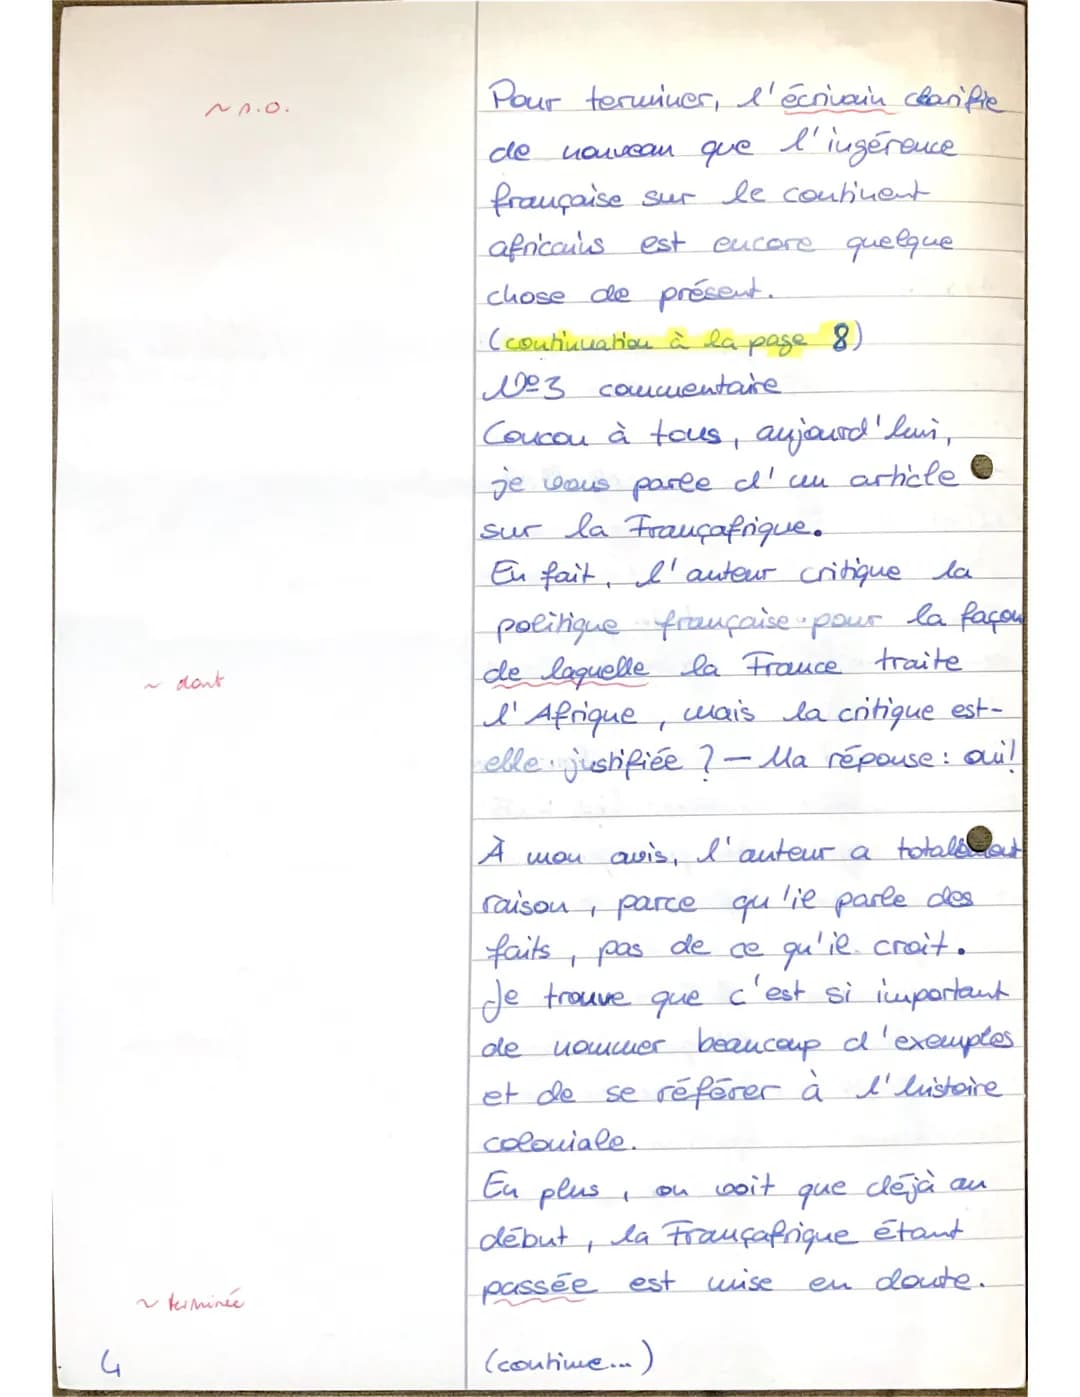 ~ s.o.
Pour terminer, l'écrivain clarifie
de nouveau que l'ingérence
française sur le continent
africains est encore quelque
chose de présent.
(continuation à la page 8)
Nº3 commentaire
Coucou à tous, aujourd'hui,
je vous parle d'un article
sur la Françafrique.
En fait, l'auteur critique la
politique française pour la façon
de laquelle la France traite
~ dont
l'Afrique, mais la critique est-
elle justifiée ? – Ma réponse : oui!
À mon avis, l'auteur a totalement
raison, parce qu'il parle des
faits, pas de ce qu'il croit.
Je trouve que c'est si important
de nommer beaucoup d'exemples
et de se référer à l'histoire
coloniale.
En plus, on voit que déjà au
début, la Françafrique étant
passée est mise en doute.
~ terminée
(continue...)
4